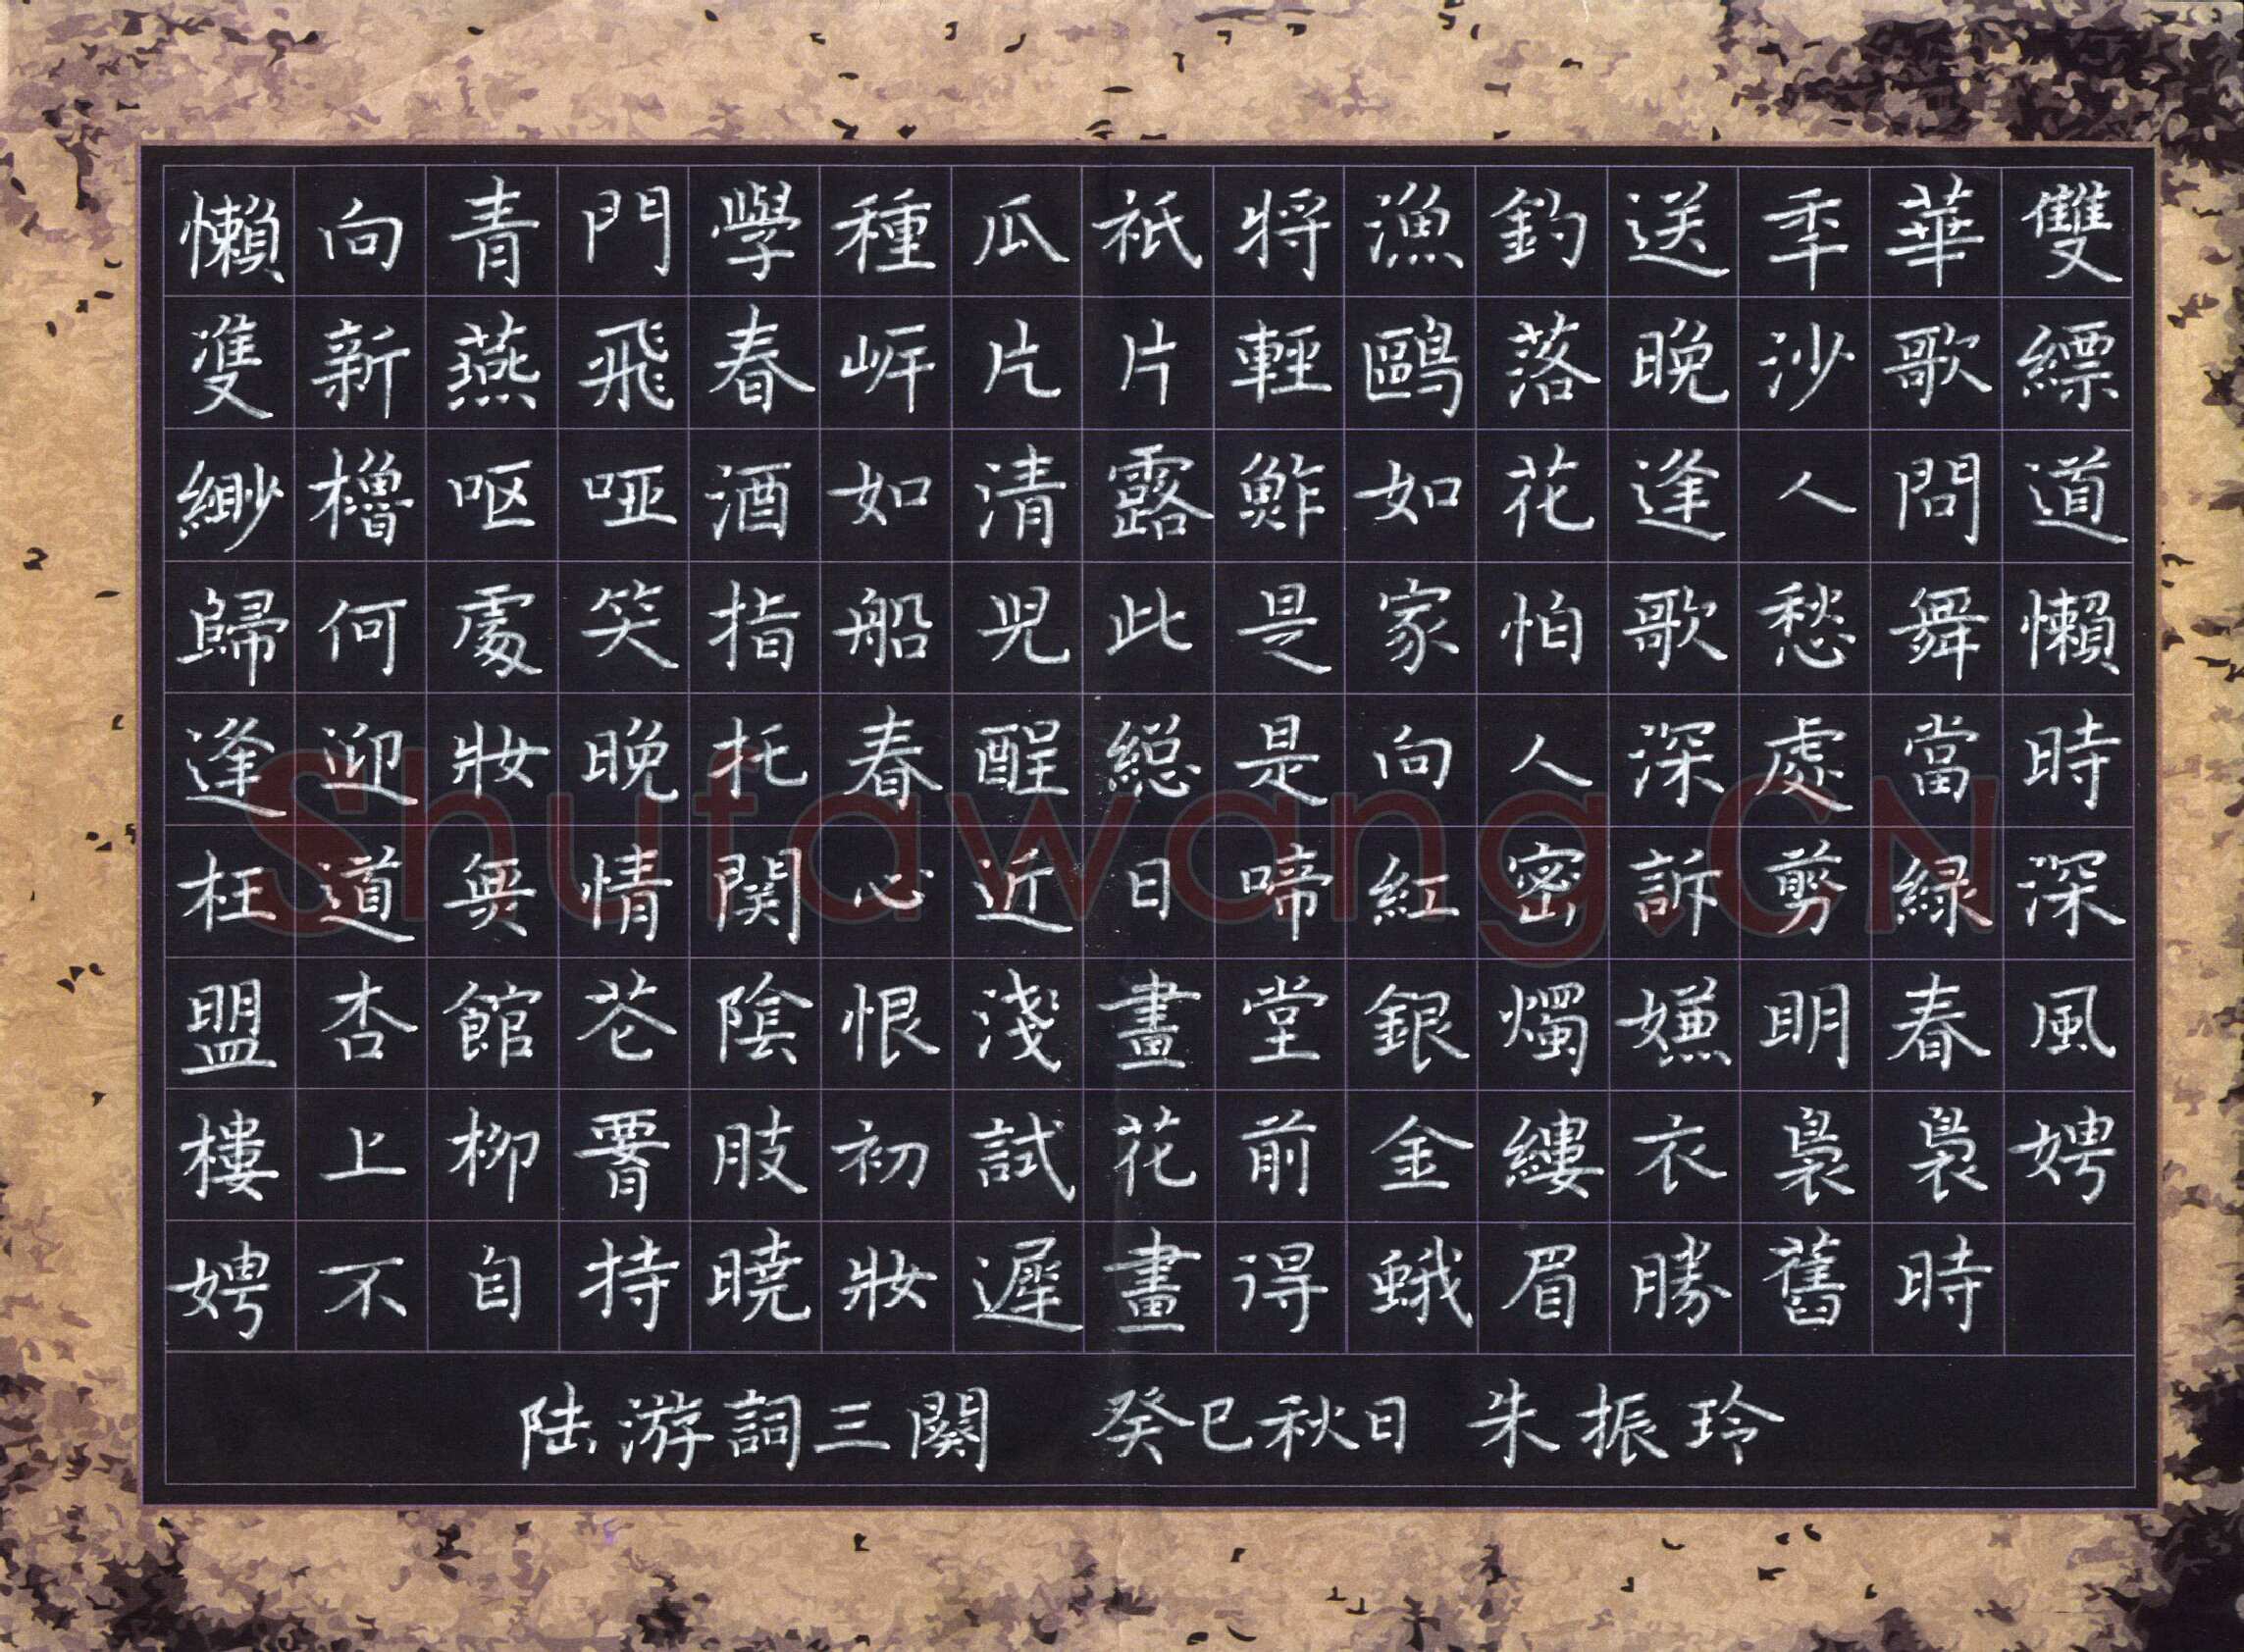 懶向青門學種瓜祇將漁釣送季華雙
雙新燕飛春岸片片輕鷗落晚沙歌縹
緲櫓呕哑酒如清露鮓如花逢人問道
歸何處笑指船兒此是家怕歌愁舞懶
逢迎妝晚托春酲総是向人深處當時
枉道無情関心近日啼紅密訴剪緑深
盟杏館花陰恨淺畫堂銀燭嫌明春風
樓上柳腰肢初試花前金縷衣裊裊娉
娉不自持曉妝遲畫得蛾眉勝舊時
陆游詞三闋 癸巳秋日 朱振玲
Shufawang.CN